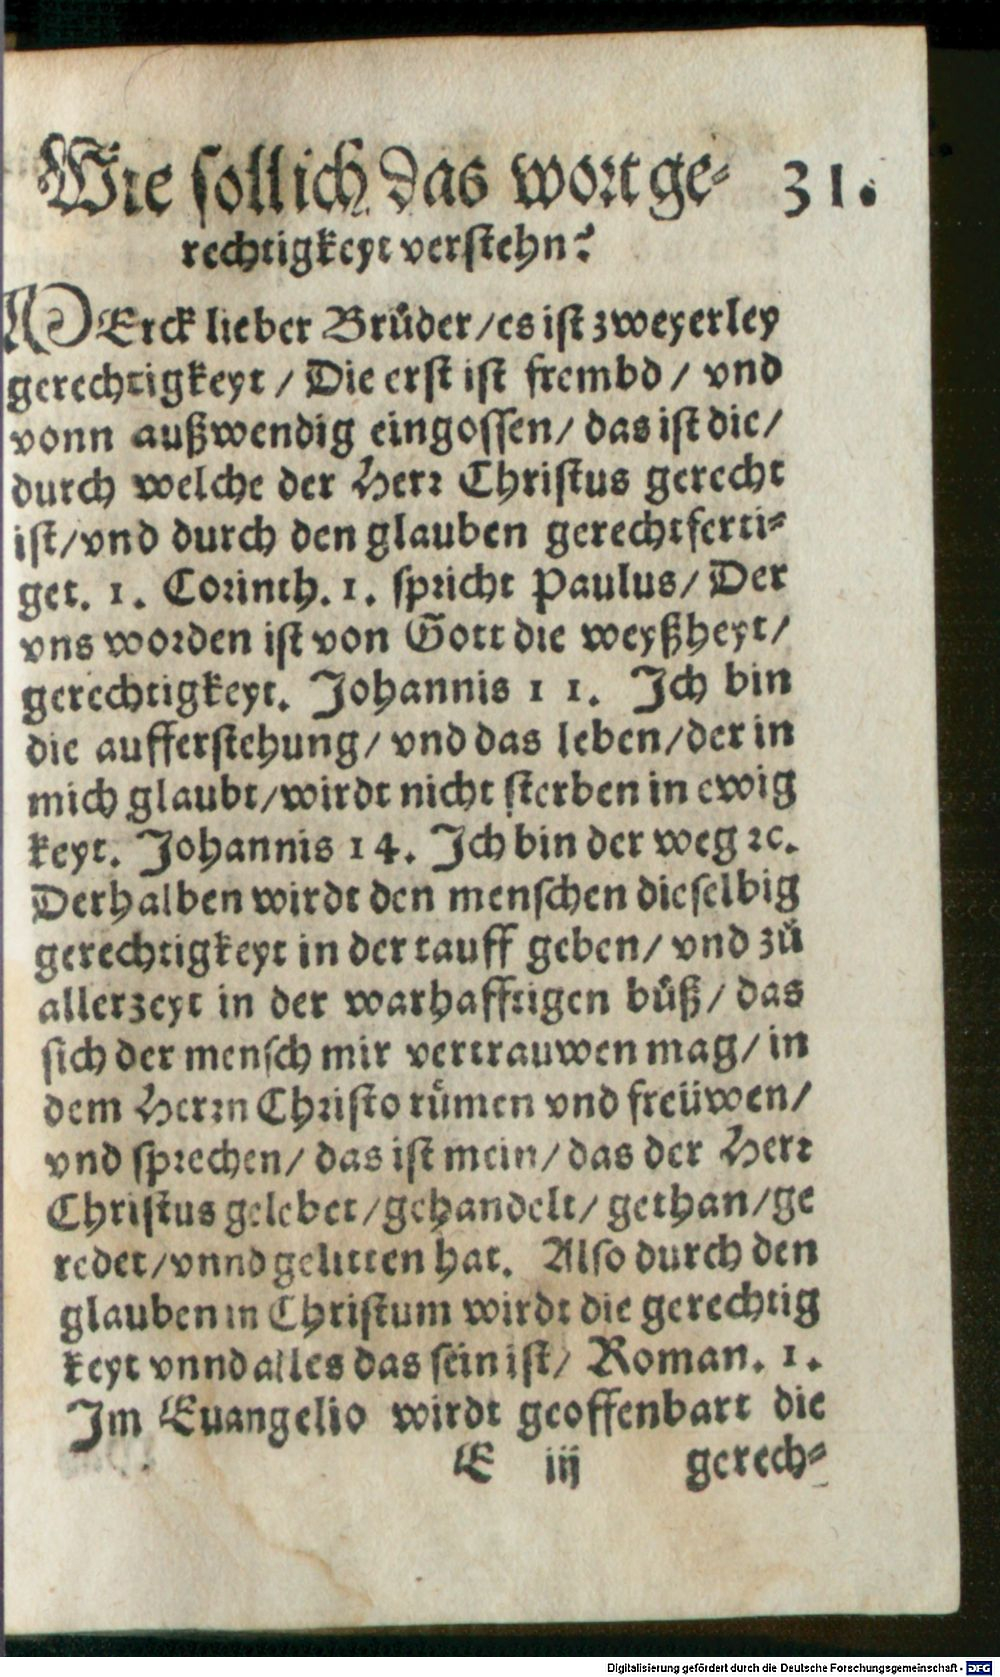 Wie soll ich das wort ge- 31.
rechtigkeyt verstehn?
MErck lieber Brůder/es ist zweyerley
gerechtigkeyt / Die erst ist frembd / vnd
vonn außwendig eingossen/ das ist die/
durch welche der Herr Christus gerecht
ist/vnd durch den glauben gerechtferti-
get. 1. Corinth. 1. spricht Paulus/ Der
vns worden ist von Gott die weyßheyt/
gerechtigkeyt. Johannis 11. Ich bin
die aufferstehung/ vnd das leben/der in
mich glaubt/wirdt nicht sterben in ewig
keyt. Johannis 14. Ich bin der weg ꝛc.
Derhalben wirdt den menschen dieselbig
gerechtigkeyt in der tauff geben/ vnd zů
allerzeyt in der warhafftigen bůß/ das
sich der mensch mit vertrauwen mag/ in
dem Herrn Christo růmen vnd freüwen/
vnd sprechen/ das ist mein/ das der Herr
Christus gelebet/gehandelt/ gethan/ge
redet/vnnd gelitten hat. Also durch den
glauben in Christum wirdt die gerechtig
keyt vnnd alles das sein ist/ Roman. 1.
Im Euangelio wirdt geoffenbart die
E iij gerech-
Digitalisierung gefördert durch die Deutsche Forschungsgemeinschaft - DFG